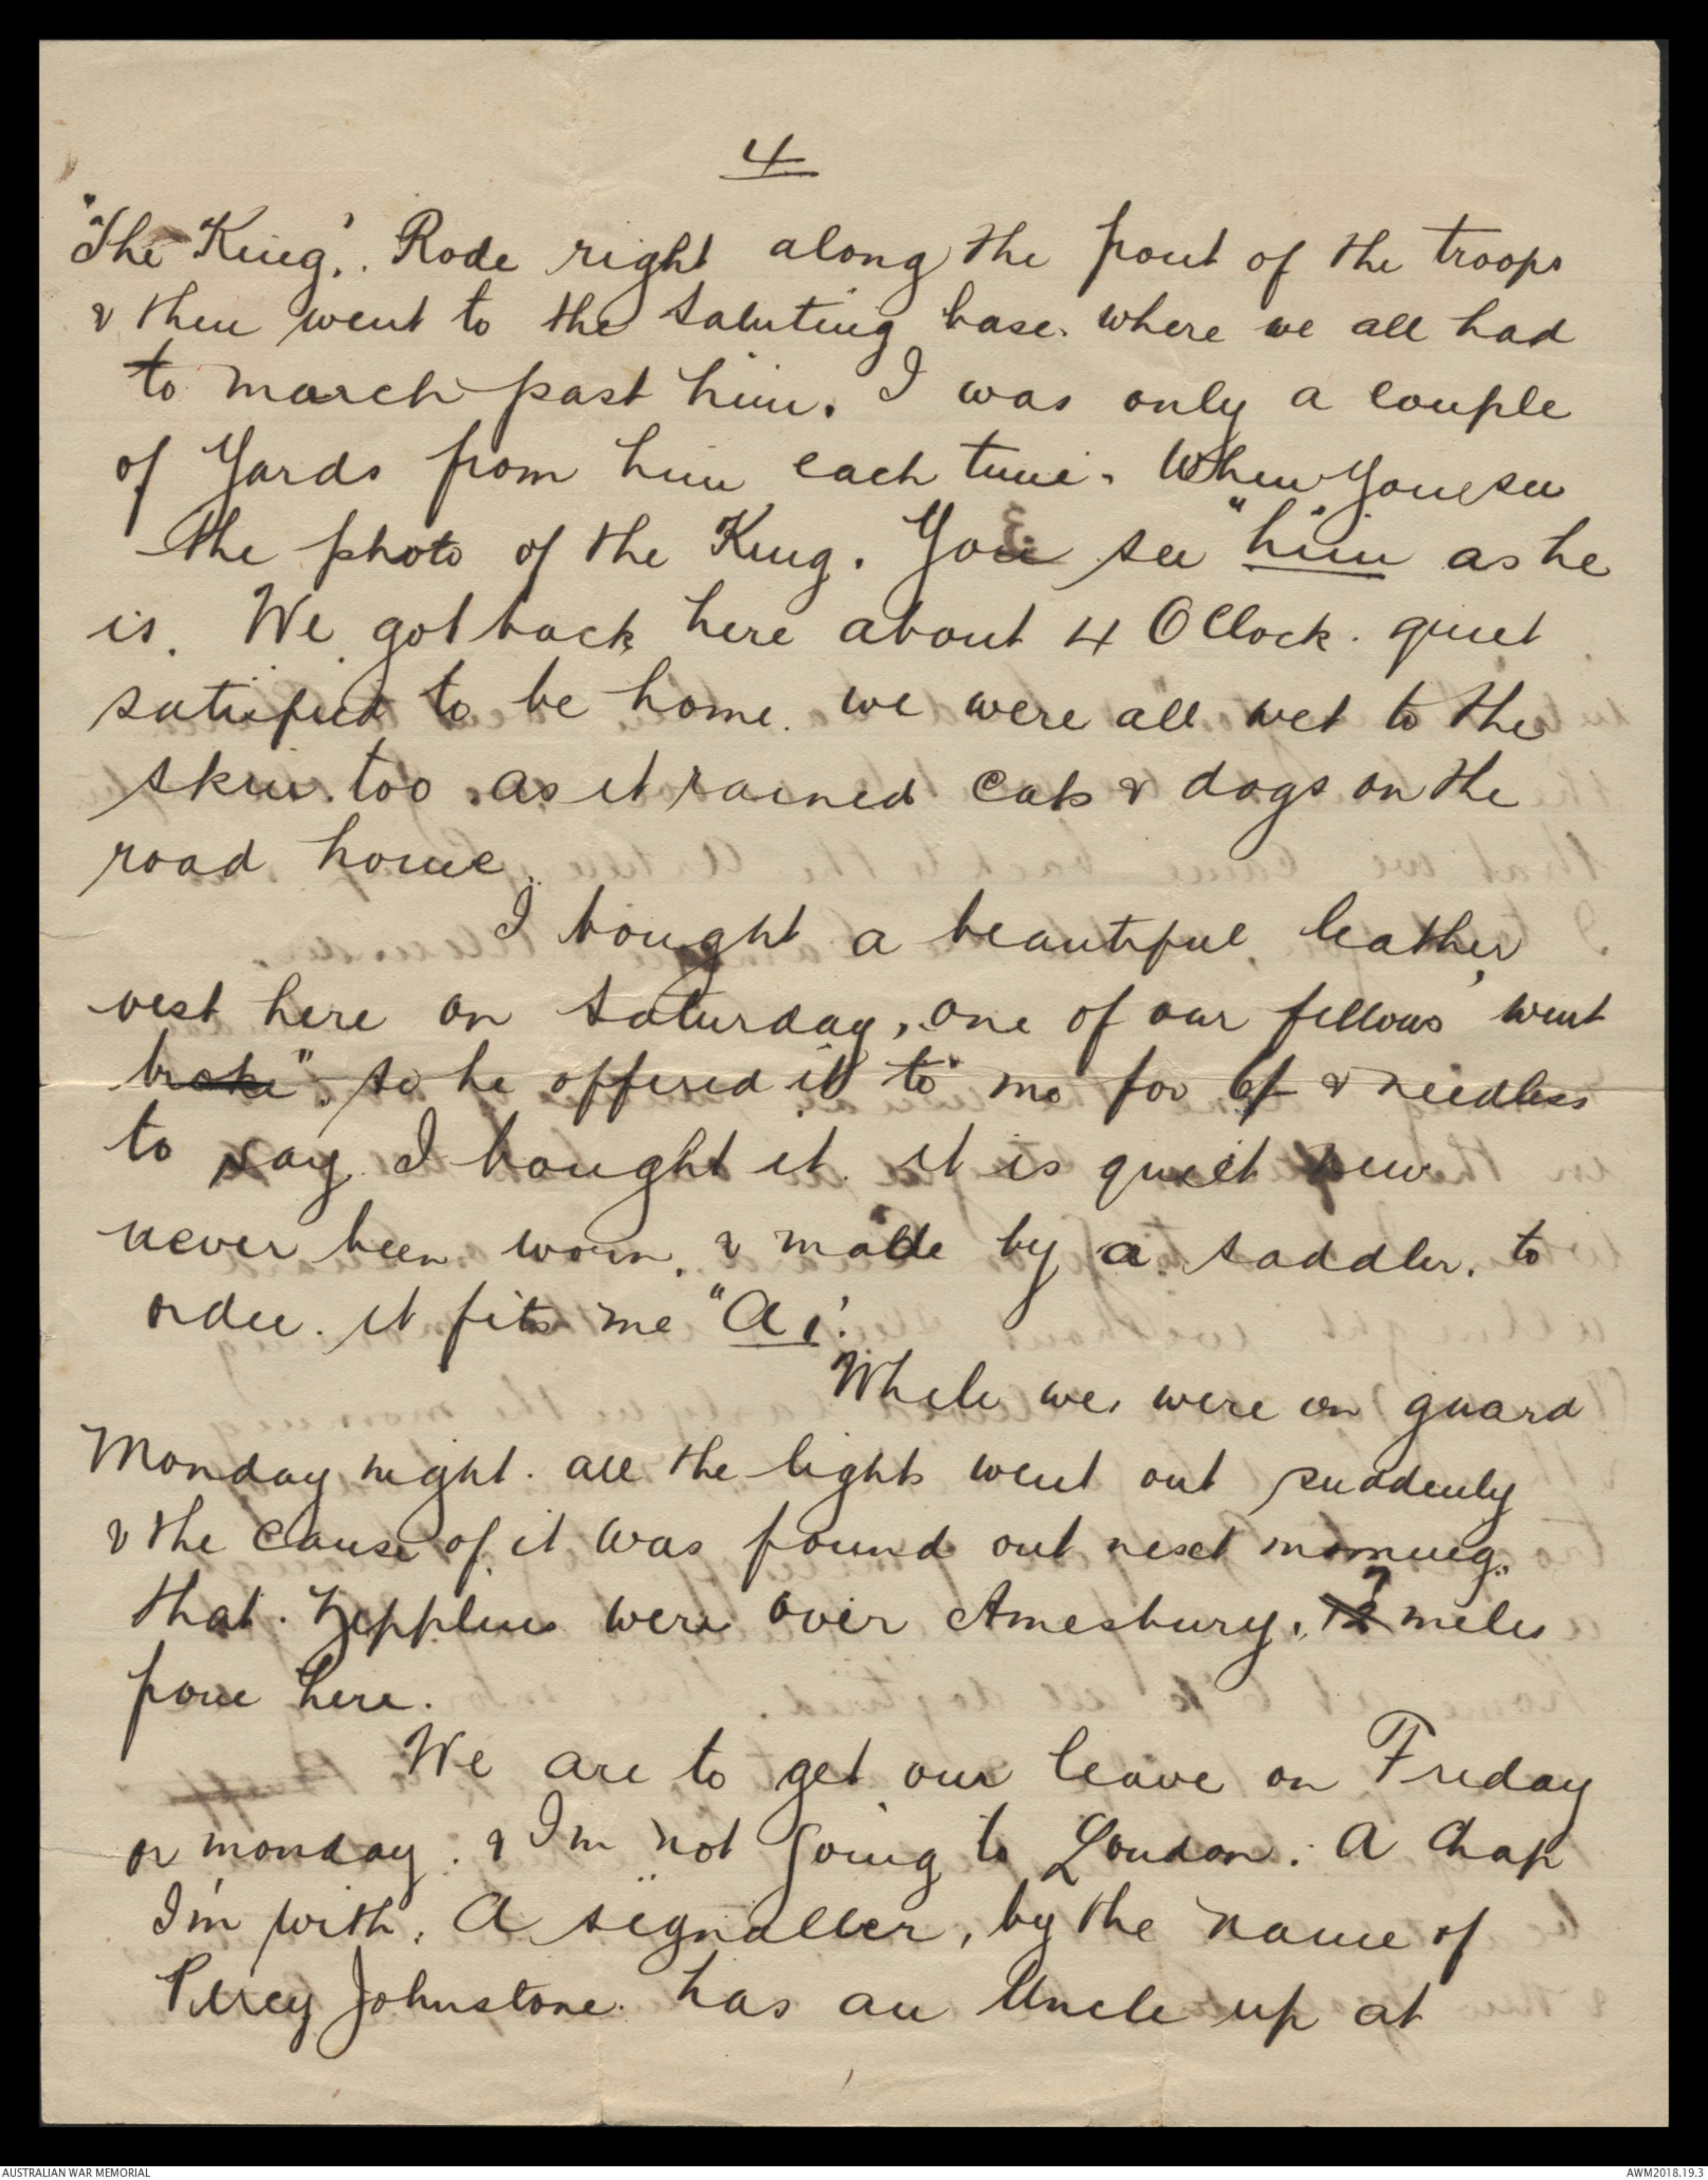 4
"The King". Rode right along the front of the troops
& then went to the saluting base. where we all had
to march past him. I was only a couple
of Yards from him each time. When You see
the photo of the King. You see "him" as he
is. We got back here about 4 OClock. quiet
satisfied to be home. we were all wet to the
skin. too. as it rained cats & dogs on the
road home.
I bought a beautiful leather
vest here on Saturday, one of our fellows "went
broke". so he offered it to me for 6/- & needless
to say I bought it. it is quiet new
never been worn, & made by a saddler. to
order. it fits me "A1".
While we were on guard
Monday night. all the lights went out suddenly
& the cause of it was found out next morning.
that. Zepplins were over Amesbury. 12 7 miles
from here.
We are to get our leave on Friday
or monday. & I'm not going to London. A Chap
I'm with. A signaller, by the name of
Percy Johnstone. has an Uncle up at
AUSTRALIAN WAR MEMORIAL
AWM2018.19.3